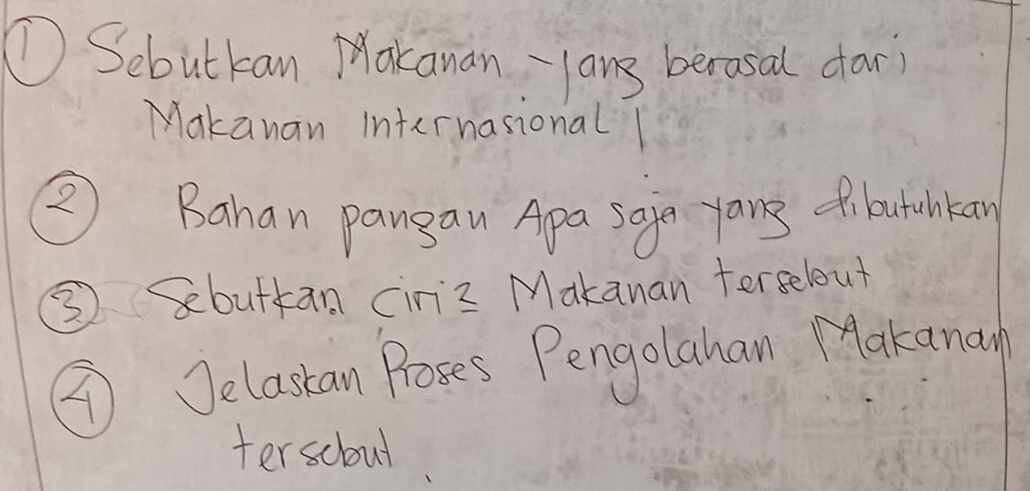 ① Sebutkan Makanan yang berasal dari
Makanan internasional !
② Bahan pangan Apa saja yang dibutuhkan
③ Sebutkan ciri2 Makanan tersebut
④ Jelaskan Proses Pengolahan Makanan
tersebut.